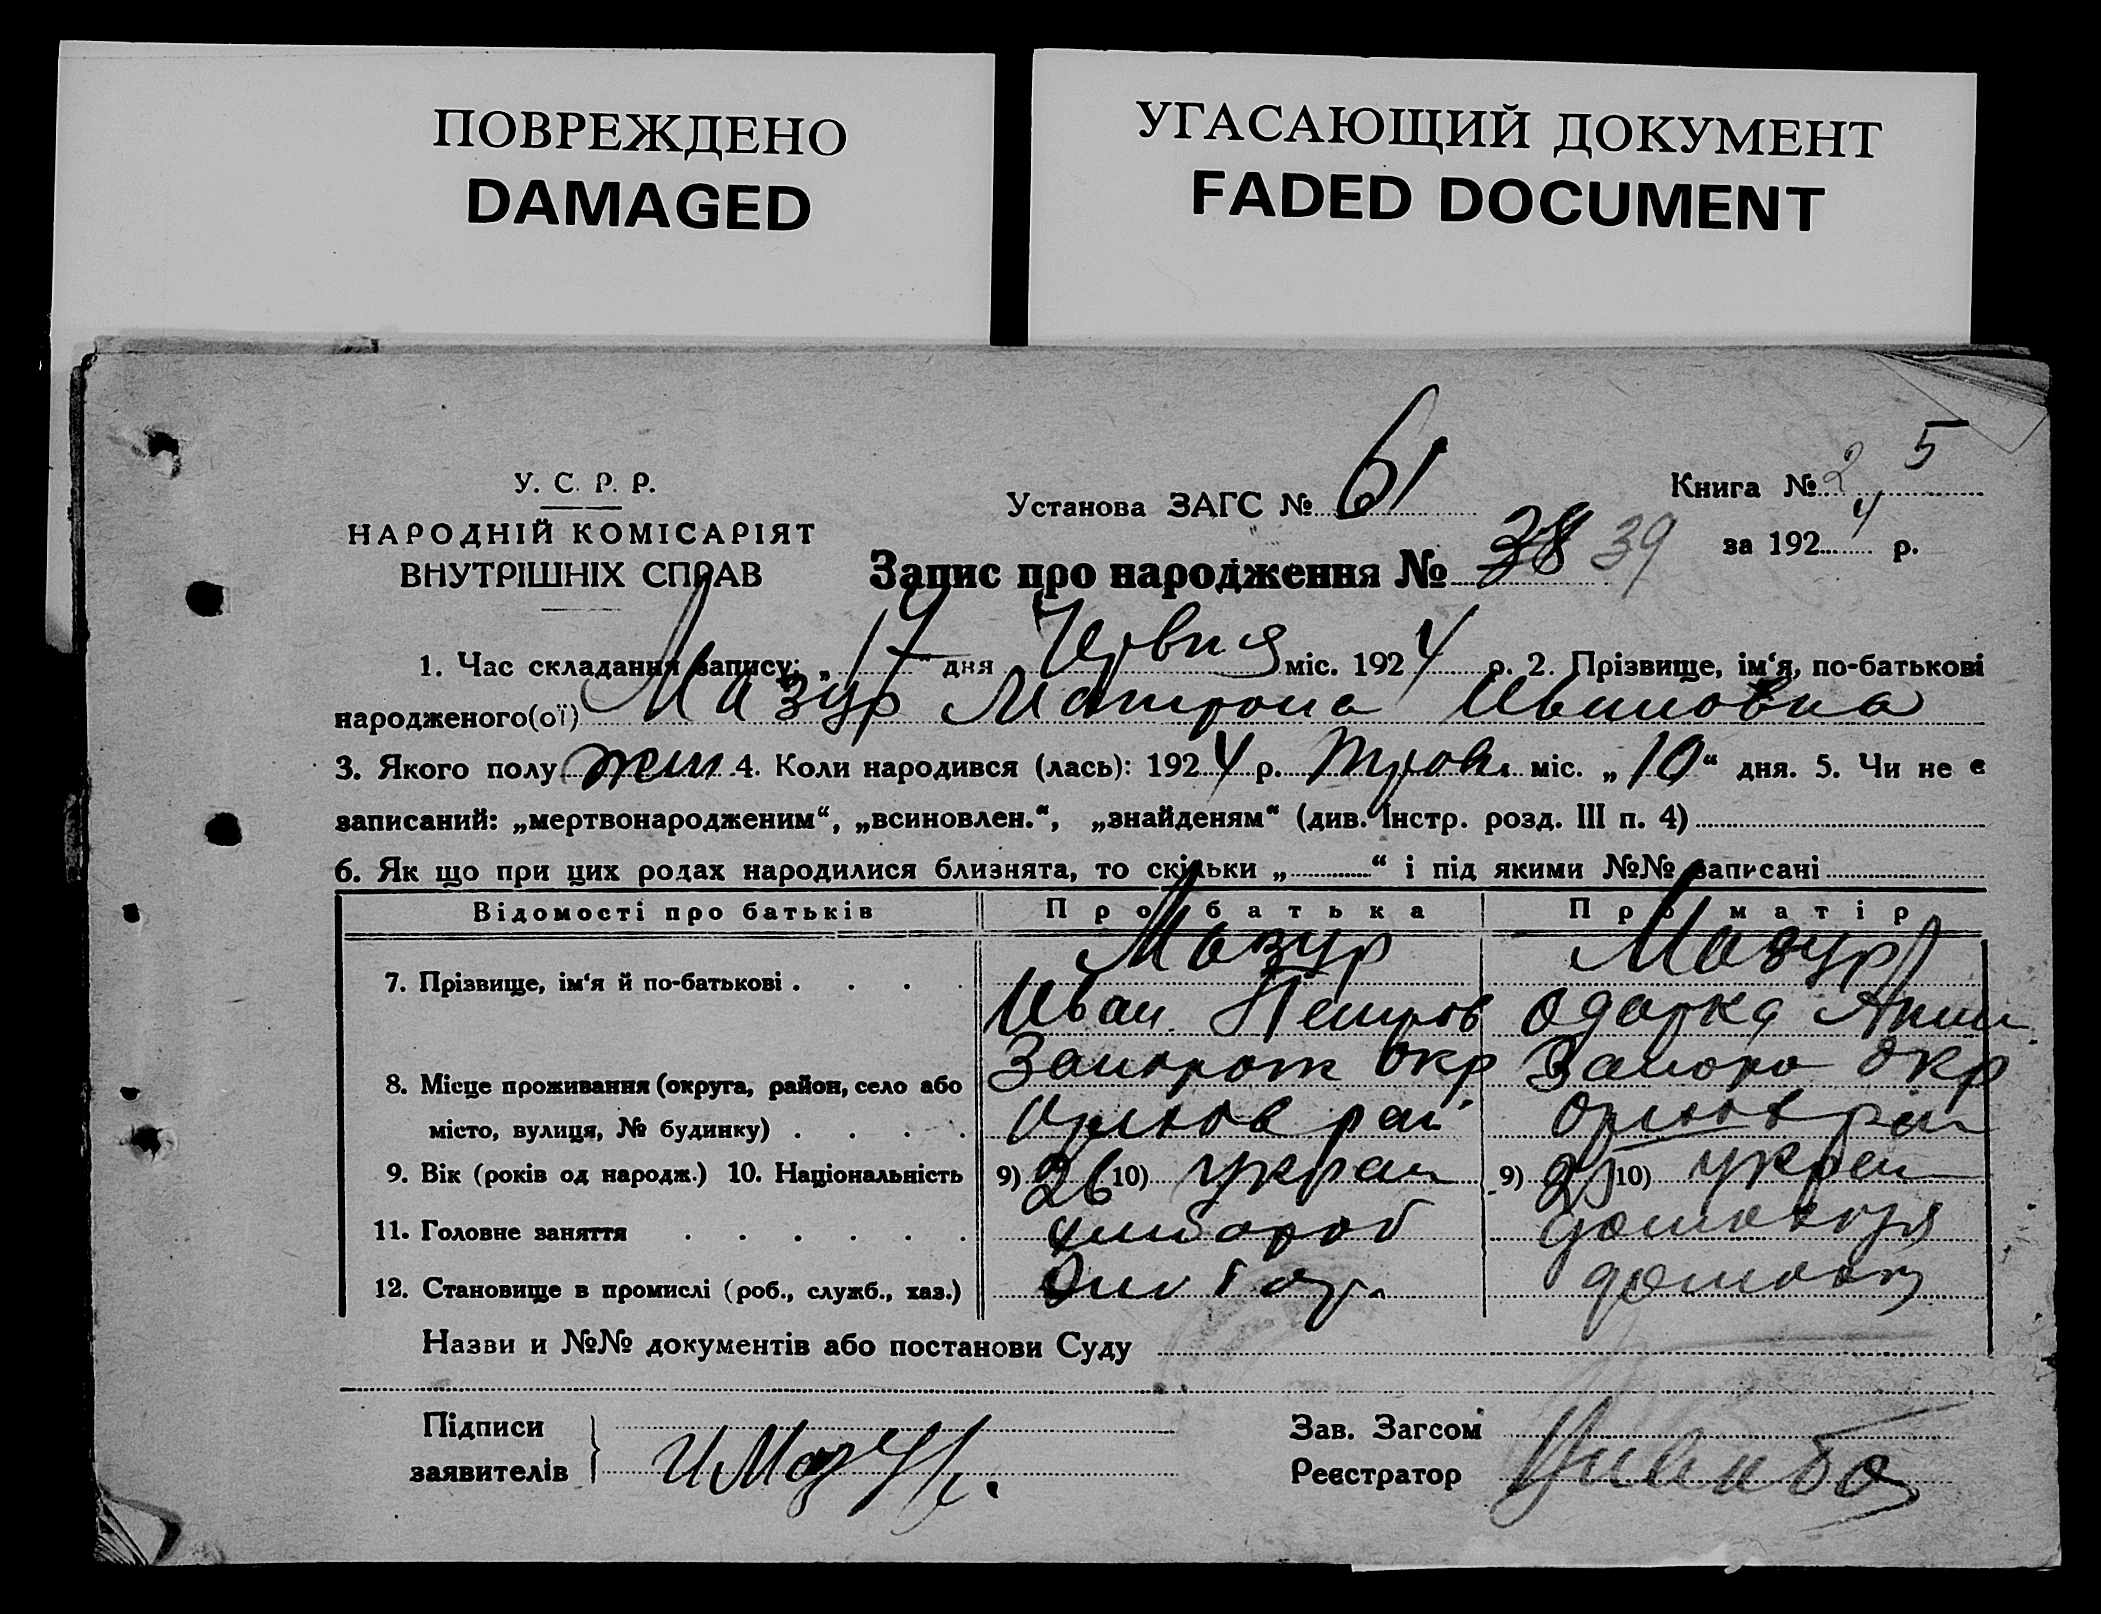 ПОВРЕЖДЕНО
DAMAGED
УГАСАЮЩИЙ ДОКУМЕНТ
FADED DOCUMENT
5
У. С. Р. Р.
НАРОДНІЙ КОМІСАРІЯТ
ВНУТРІШНІХ СПРАВ
Установа ЗАГС № 61
Книга № 2
за 1924 р.
Запис про народження № 38 39
1. Час складання запису: „17“ дня Червня міс. 1924 р. 2. Прізвище, ім‘я, по-батькові
народженого(ої) Мазур Матрона Ивановна
3. Якого полу жін 4. Коли народився (лась): 1924 р. міс. „10“ дня. 5. Чи не є
записаний: „мертвонародженим“, „всиновлен.“, „знайденям“ (див. Інстр. розд. III п. 4)
6. Як що при цих родах народилися близнята, то скільки „ “ і під якими №№ записані
Відомості про батьків Про батька Про матір
7. Прізвище, ім‘я й по-батькові . . . . Мазур Мазур
Иван Петров Одарка
8. Місце проживання (округа, район, село або Запорож Окр Запоро Окр
місто, вулиця, № будинку) . . . . рай
9. Вік (років од народж.) 10. Національність 9) 26 10) украін 9) 25 10) украін
11. Головне заняття . . . . . . хлібороб
12. Становище в промислі (роб., служб., хаз.)
Назви и №№ документів або постанови Суду
Підписи
заявителів И Мазур.
Зав. Загсом
Реєстратор